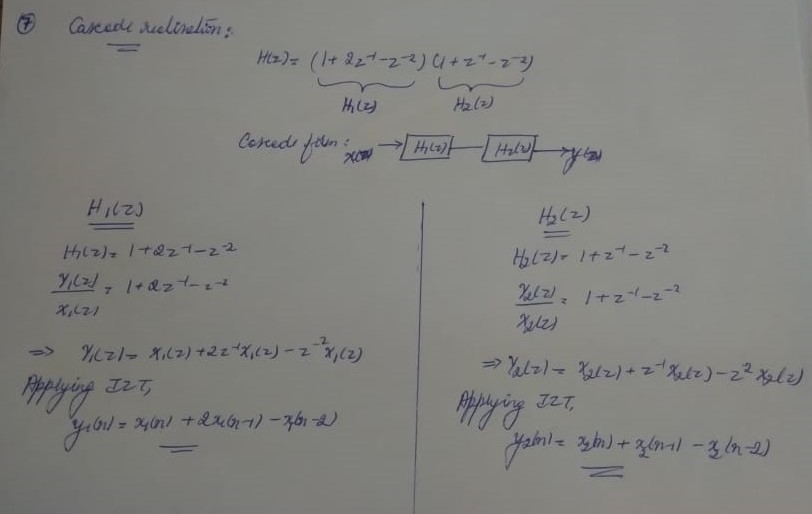 ⑦ Cascade realisation:
H(z) = (1 + 2z⁻¹ - z⁻²) (1 + z⁻¹ - z⁻²)
H₁(z) H₂(z)
Cascade form: x(n) → H₁(z) H₂(z) → y(n)
H₁(z)
H₁(z) = 1 + 2z⁻¹ - z⁻²
Y₁(z)/X₁(z) = 1 + 2z⁻¹ - z⁻²
⇒ Y₁(z) = X₁(z) + 2z⁻¹X₁(z) - z⁻²X₁(z)
Applying IZT,
y₁(n) = x₁(n) + 2x₁(n-1) - x₁(n-2)
H₂(z)
H₂(z) = 1 + z⁻¹ - z⁻²
Y₂(z)/X₂(z) = 1 + z⁻¹ - z⁻²
⇒ Y₂(z) = X₂(z) + z⁻¹X₂(z) - z⁻²X₂(z)
Applying IZT,
y₂(n) = x₂(n) + x₂(n-1) - x₂(n-2)